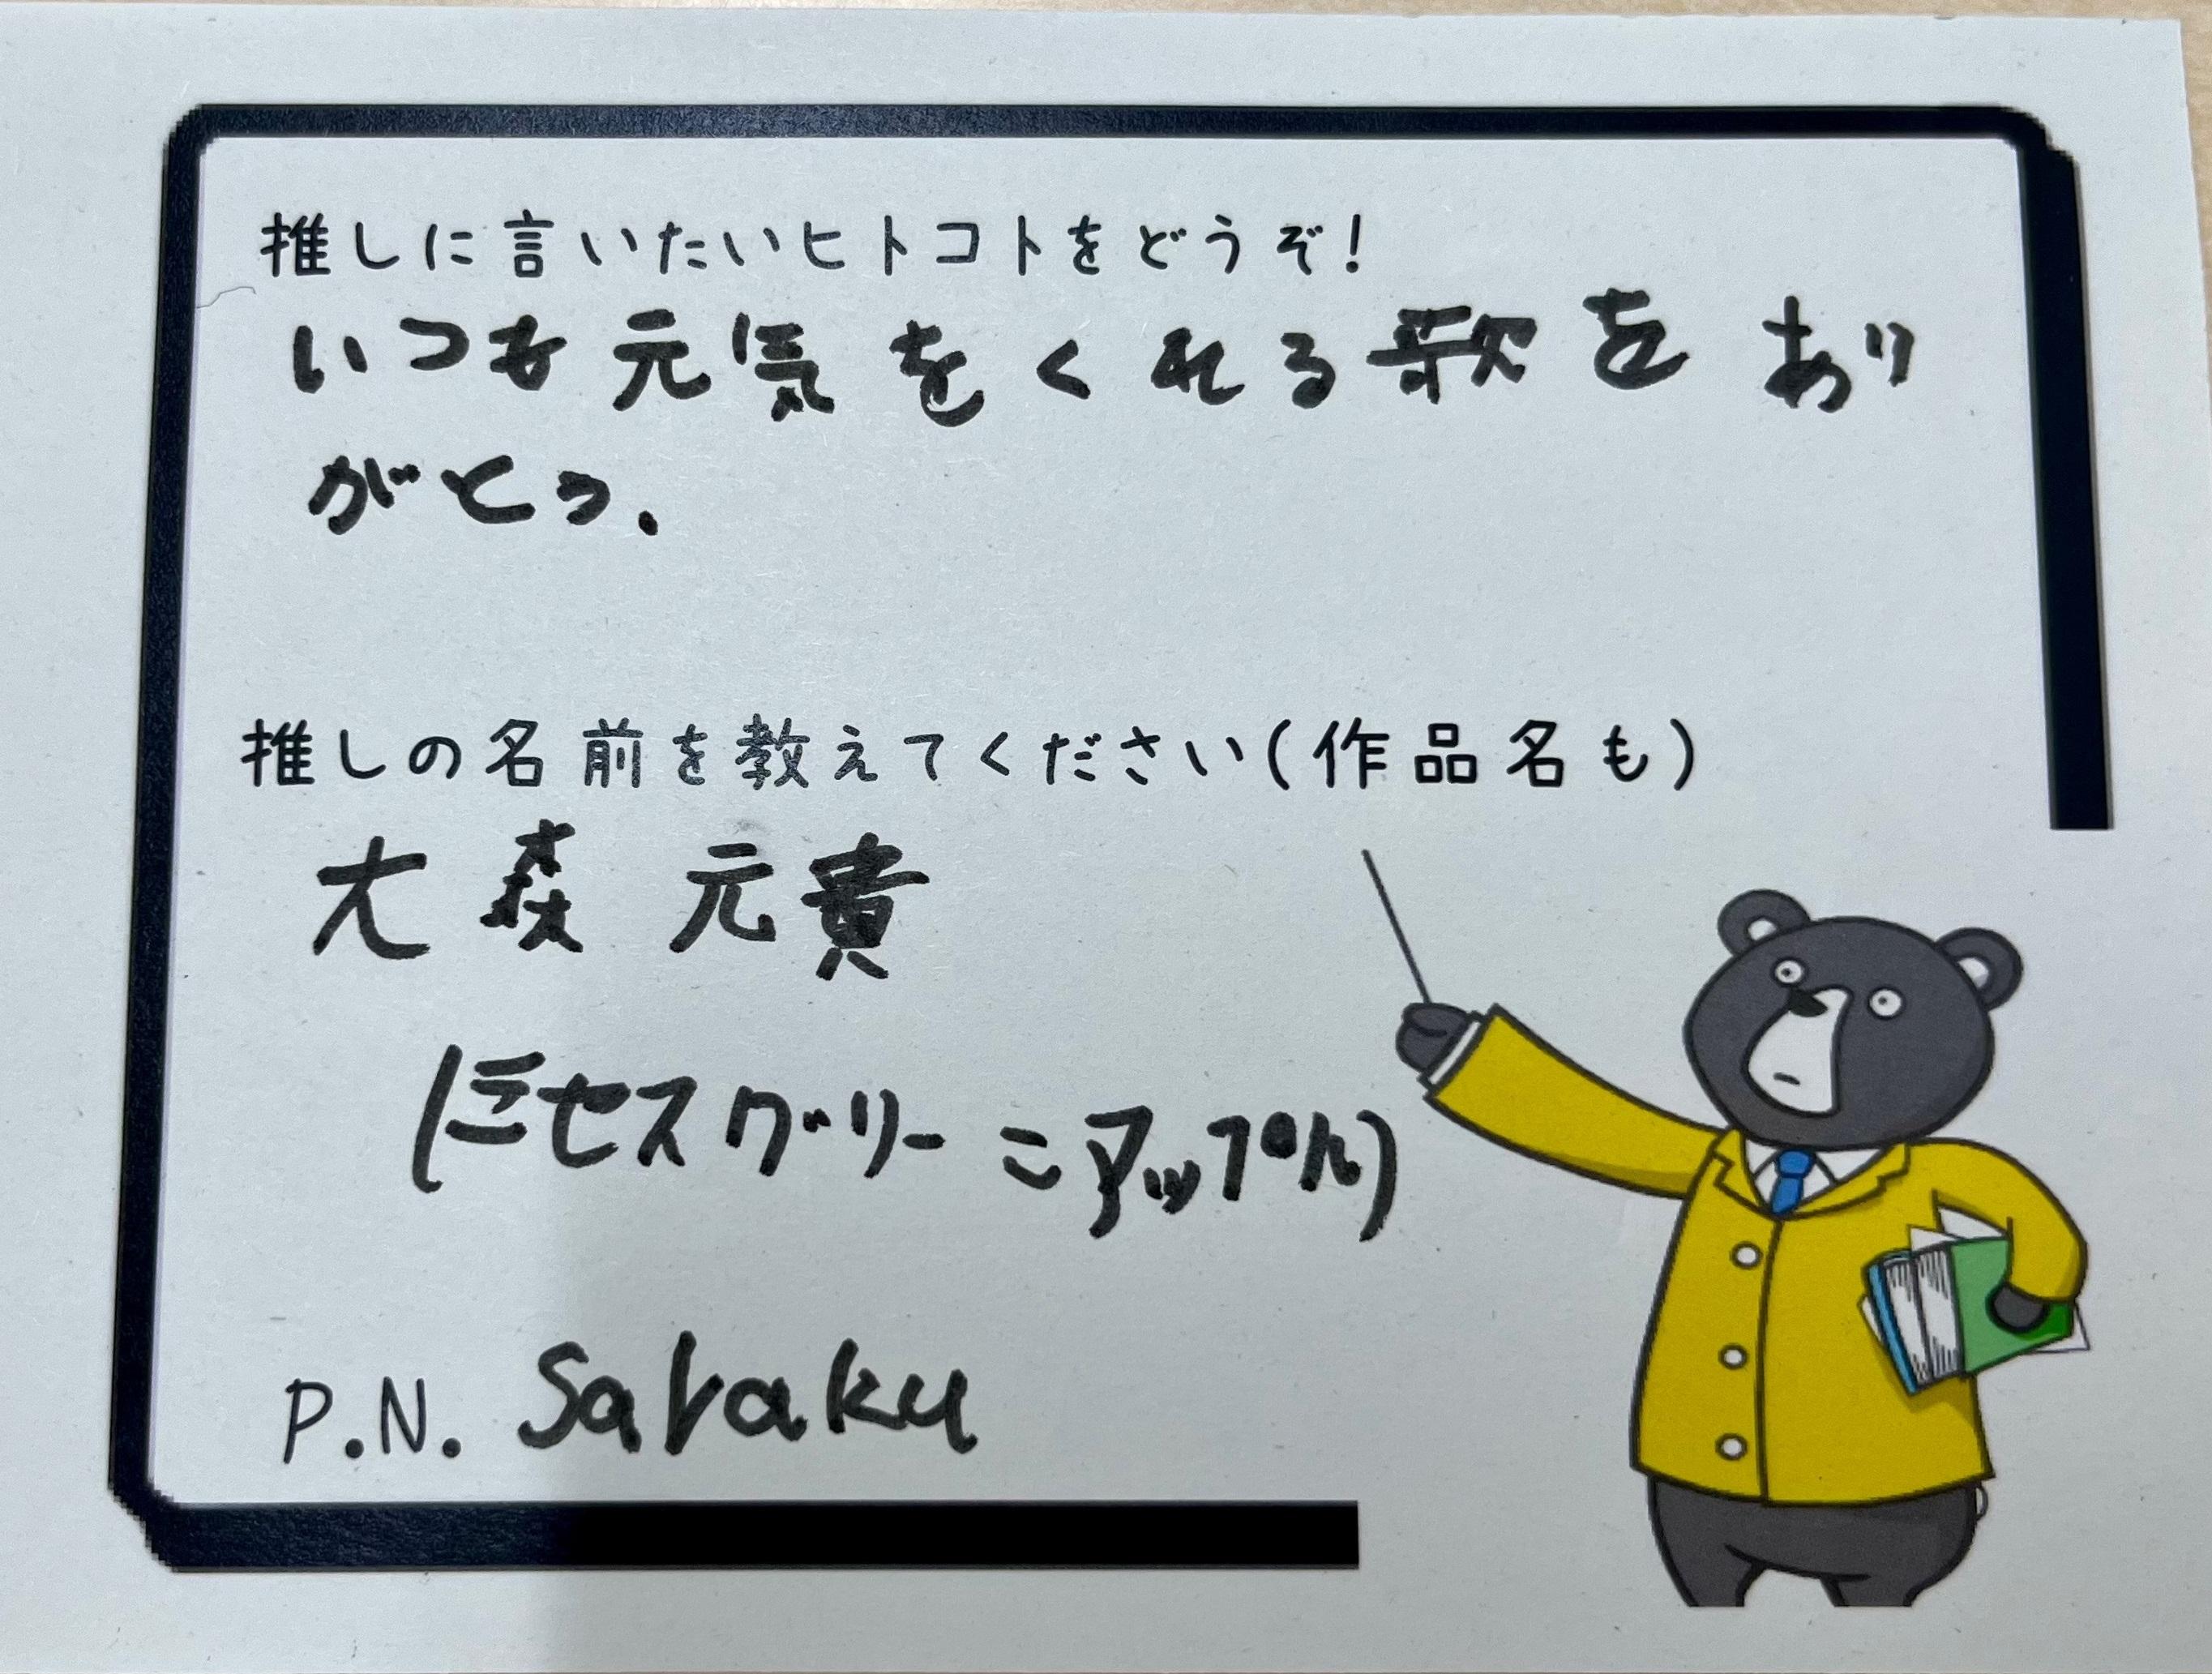 推しに言いたいヒトコトをどうぞ!
いつも元気をくれる歌をあり
がとう.
推しの名前を教えてください(作品名も)
大森元貴
(ミセスグリーンアップル)
P.N. Saraku